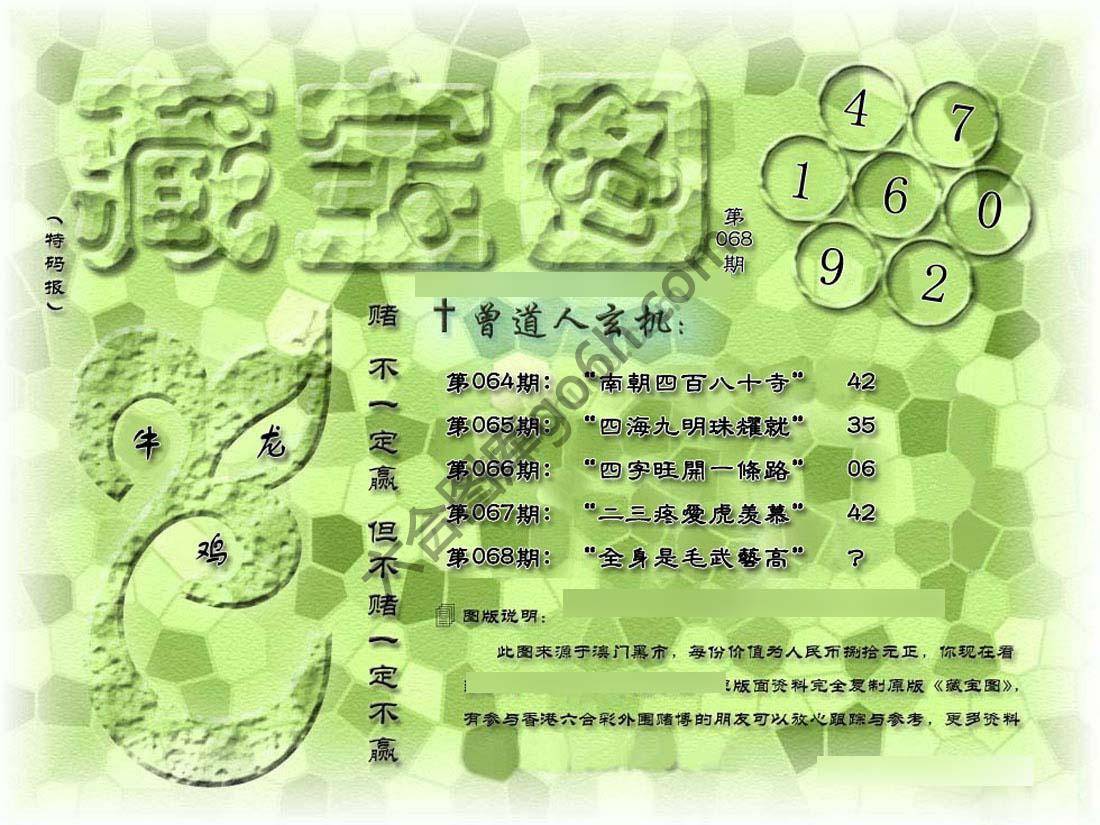 藏宝图
（特码报）
第
068
期
4
7
1
6
0
9
2
牛
龙
鸡
赌不一定赢 但不赌一定不赢
✝曾道人玄机：
第064期： “南朝四百八十寺” 42
第065期： “四海九明珠耀就” 35
第066期： “四字旺開一條路” 06
第067期： “二三疼愛虎羡慕” 42
第068期： “全身是毛武藝高” ?
图版说明：
此图来源于澳门黑市，每份价值为人民币捌拾元正，你现在看
版面资料完全复制原版《藏宝图》，
有参与香港六合彩外围赌博的朋友可以放心跟踪与参考，更多资料
六合图库go6h.com